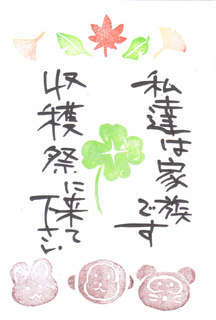 私達は家族
です
収穫祭に来て
下さい